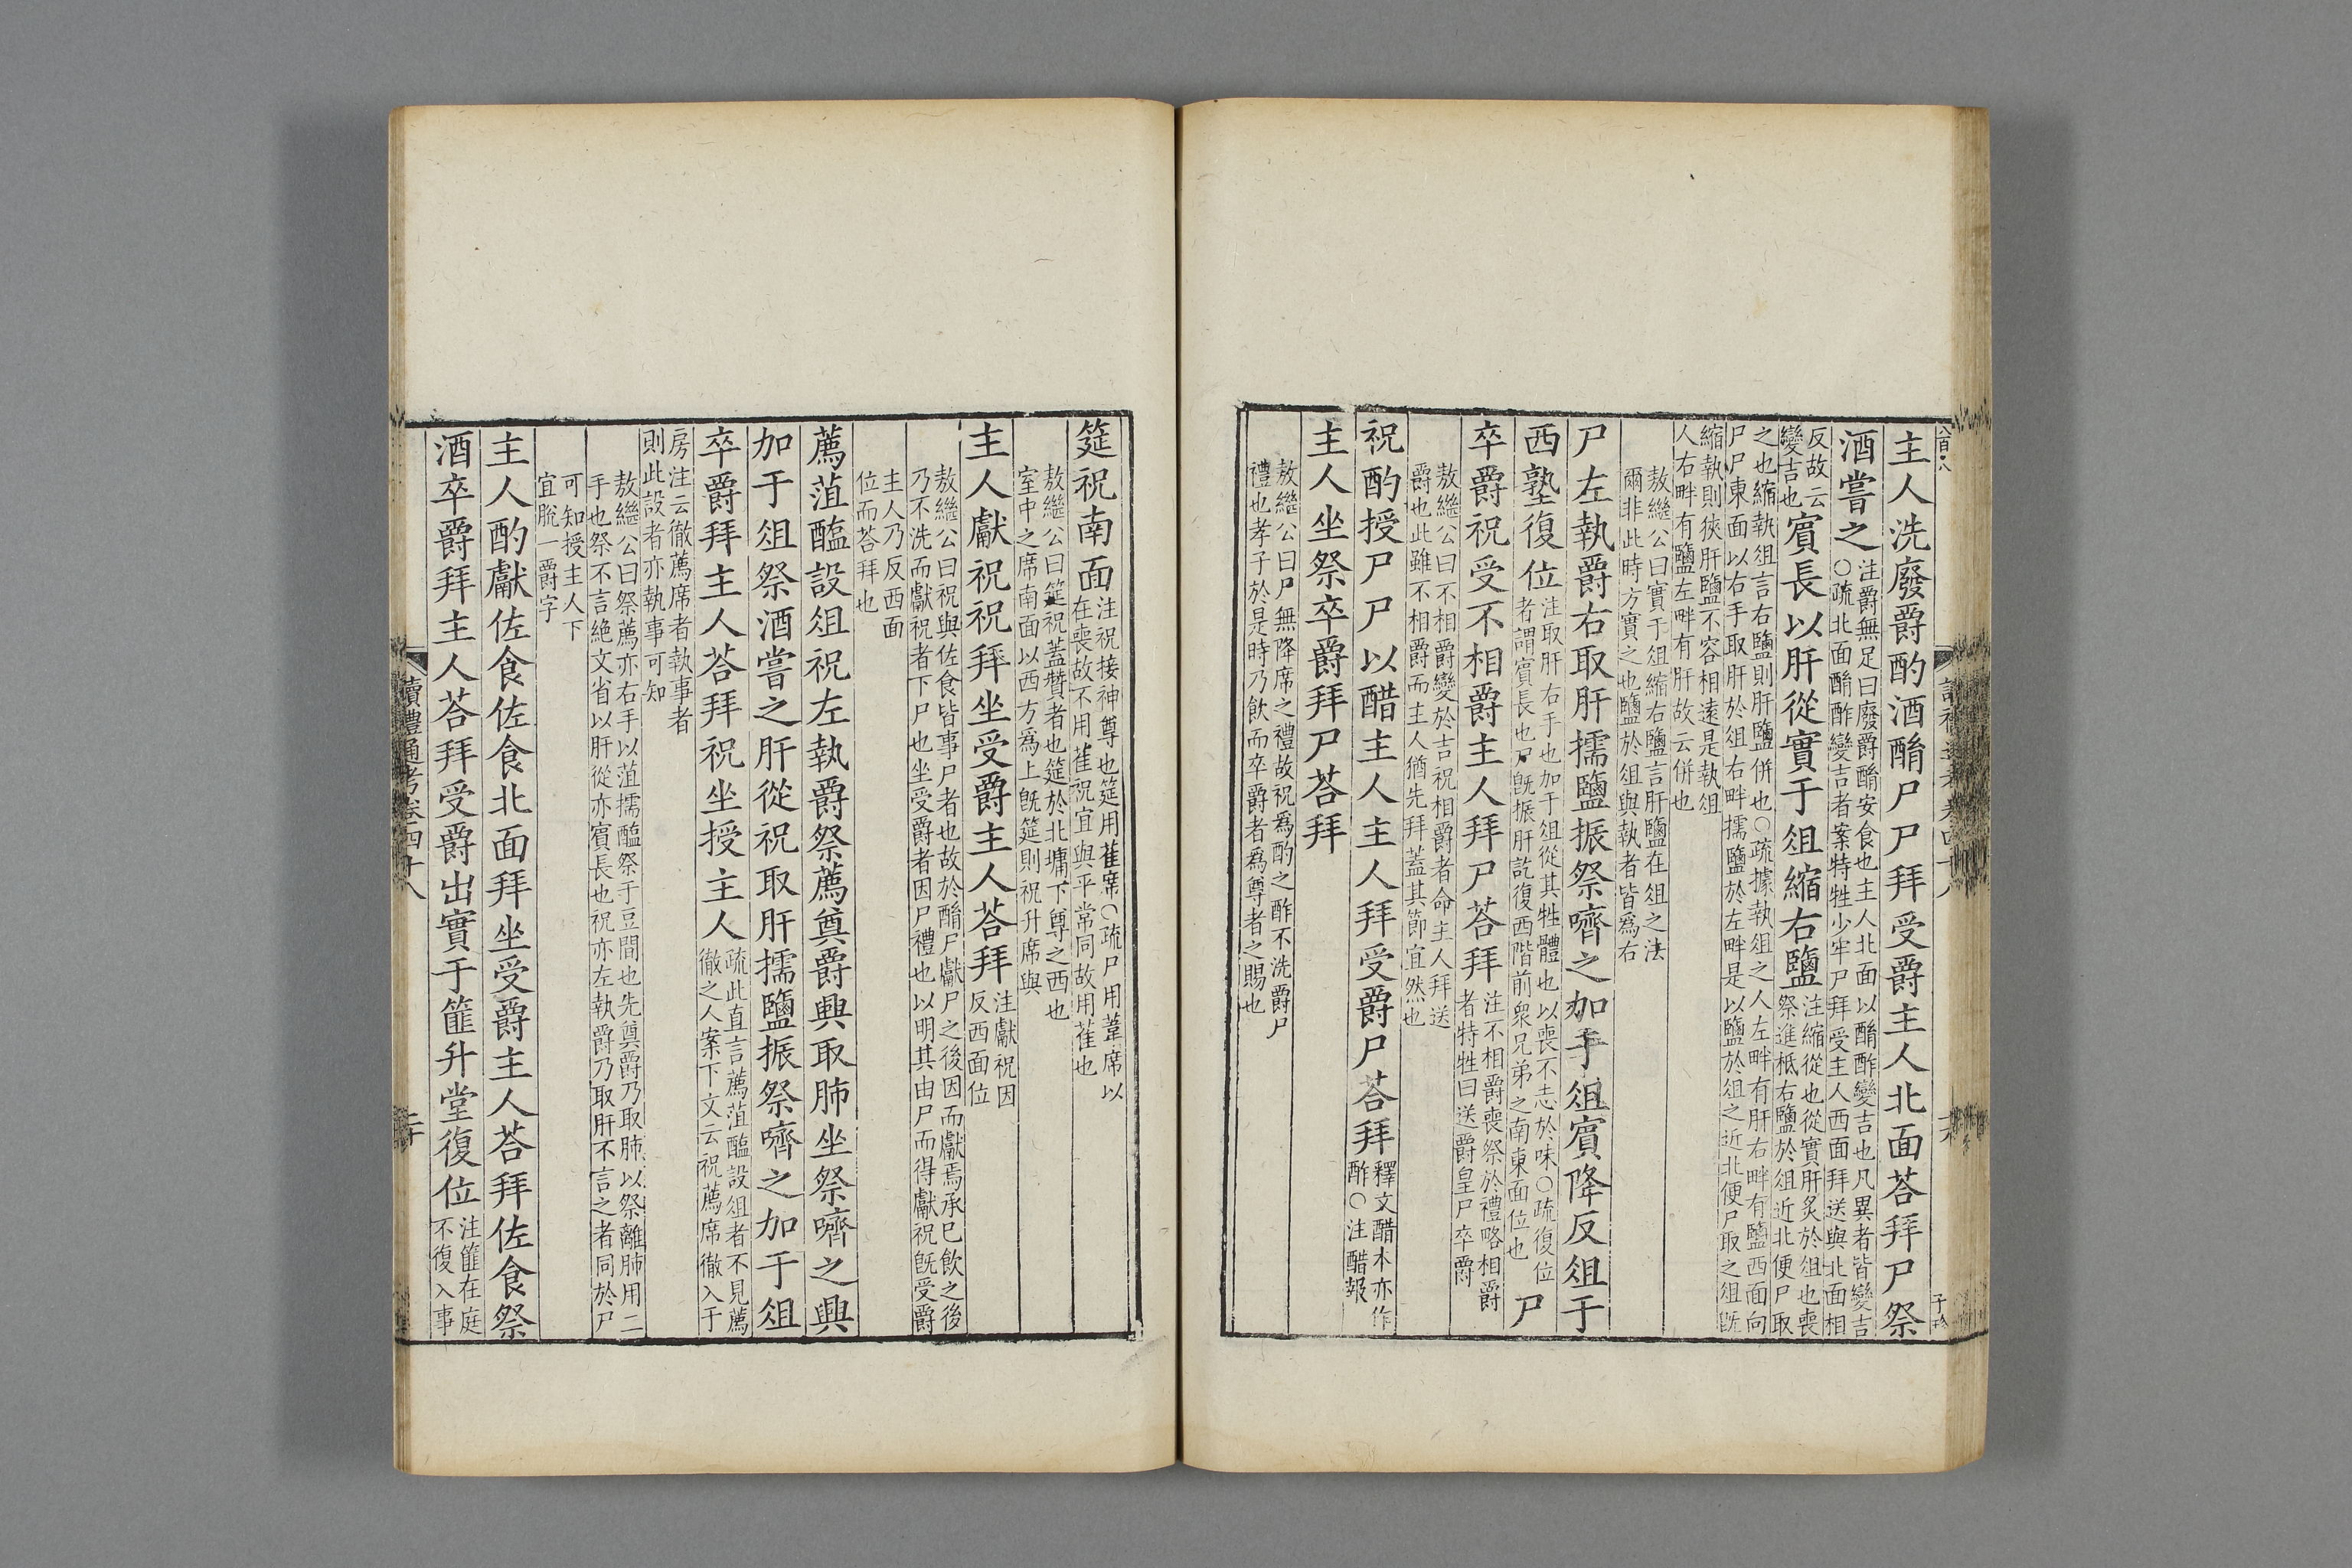 主人洗廢爵酌酒酳尸尸拜受爵主人北面荅拜尸祭
酒嘗之注爵無足曰廢爵酳安食也主人北面以酳酢變吉也凡異者皆變吉
○疏北面酳酢變吉者案特牲少牢尸拜受主人西面拜送與北面相
反故云
變吉也賓長以肝從實于俎縮右鹽注縮從也從實肝炙於俎也喪
祭進柢右鹽於俎近北便尸取
之也縮執俎言右鹽則肝鹽併也○疏據執俎之人左畔有肝右畔有鹽西面向
尸尸東面以右手取肝於俎右畔擩鹽於左畔是以鹽於俎之近北便尸取之俎旣
縮執則狹肝鹽不容相遠是執俎
人右畔有鹽左畔有肝故云併也
敖繼公曰實于俎縮右鹽言肝鹽在俎之法
爾非此時方實之也鹽於俎與執者皆爲右
尸左執爵右取肝擩鹽振祭嚌之加于俎賓降反俎于
西塾復位注取肝右手也加于俎從其牲體也以喪不志於味○疏復位
者謂賓長也尸旣振肝訖復西階前衆兄弟之南東面位也尸
卒爵祝受不相爵主人拜尸荅拜注不相爵喪祭於禮略相爵
者特牲曰送爵皇尸卒爵
敖繼公曰不相爵變於吉祝相爵者命主人拜送
爵也此雖不相爵而主人猶先拜蓋其節宜然也
祝酌授尸尸以醋主人主人拜受爵尸荅拜釋文醋本亦作
酢○注醋報
主人坐祭卒爵拜尸荅拜
敖繼公曰尸無降席之禮故祝爲酌之酢不洗爵尸
禮也孝子於是時乃飲而卒爵者爲尊者之賜也
筵祝南面注祝接神尊也筵用萑席○疏尸用葦席以
在喪故不用萑祝宜與平常同故用萑也
敖繼公曰筵祝蓋贊者也筵於北墉下尊之西也
室中之席南面以西方爲上旣筵則祝升席與
主人獻祝祝拜坐受爵主人荅拜注獻祝因
反西面位
敖繼公曰祝與佐食皆事尸者也故於酳尸獻尸之後因而獻焉承巳飲之後
乃不洗而獻祝者下尸也坐受爵者因尸禮也以明其由尸而得獻祝旣受爵
主人乃反西面
位而荅拜也
薦菹醢設俎祝左執爵祭薦奠爵興取肺坐祭嚌之興
加于俎祭酒嘗之肝從祝取肝擩鹽振祭嚌之加于俎
卒爵拜主人荅拜祝坐授主人疏此直言薦菹醢設俎者不見薦
徹之人案下文云祝薦席徹入于
房注云徹薦席者執事者
則此設者亦執事可知
敖繼公曰祭薦亦右手以菹擩醢祭于豆間也先奠爵乃取肺以祭離肺用二
手也祭不言絶文省以肝從亦賓長也祝亦左執爵乃取肝不言之者同於尸
可知授主人下
宜脫一爵字
主人酌獻佐食佐食北面拜坐受爵主人荅拜佐食祭
酒卒爵拜主人荅拜受爵出實于篚升堂復位注篚在庭
不復入事
讀禮通考卷四十八
二十